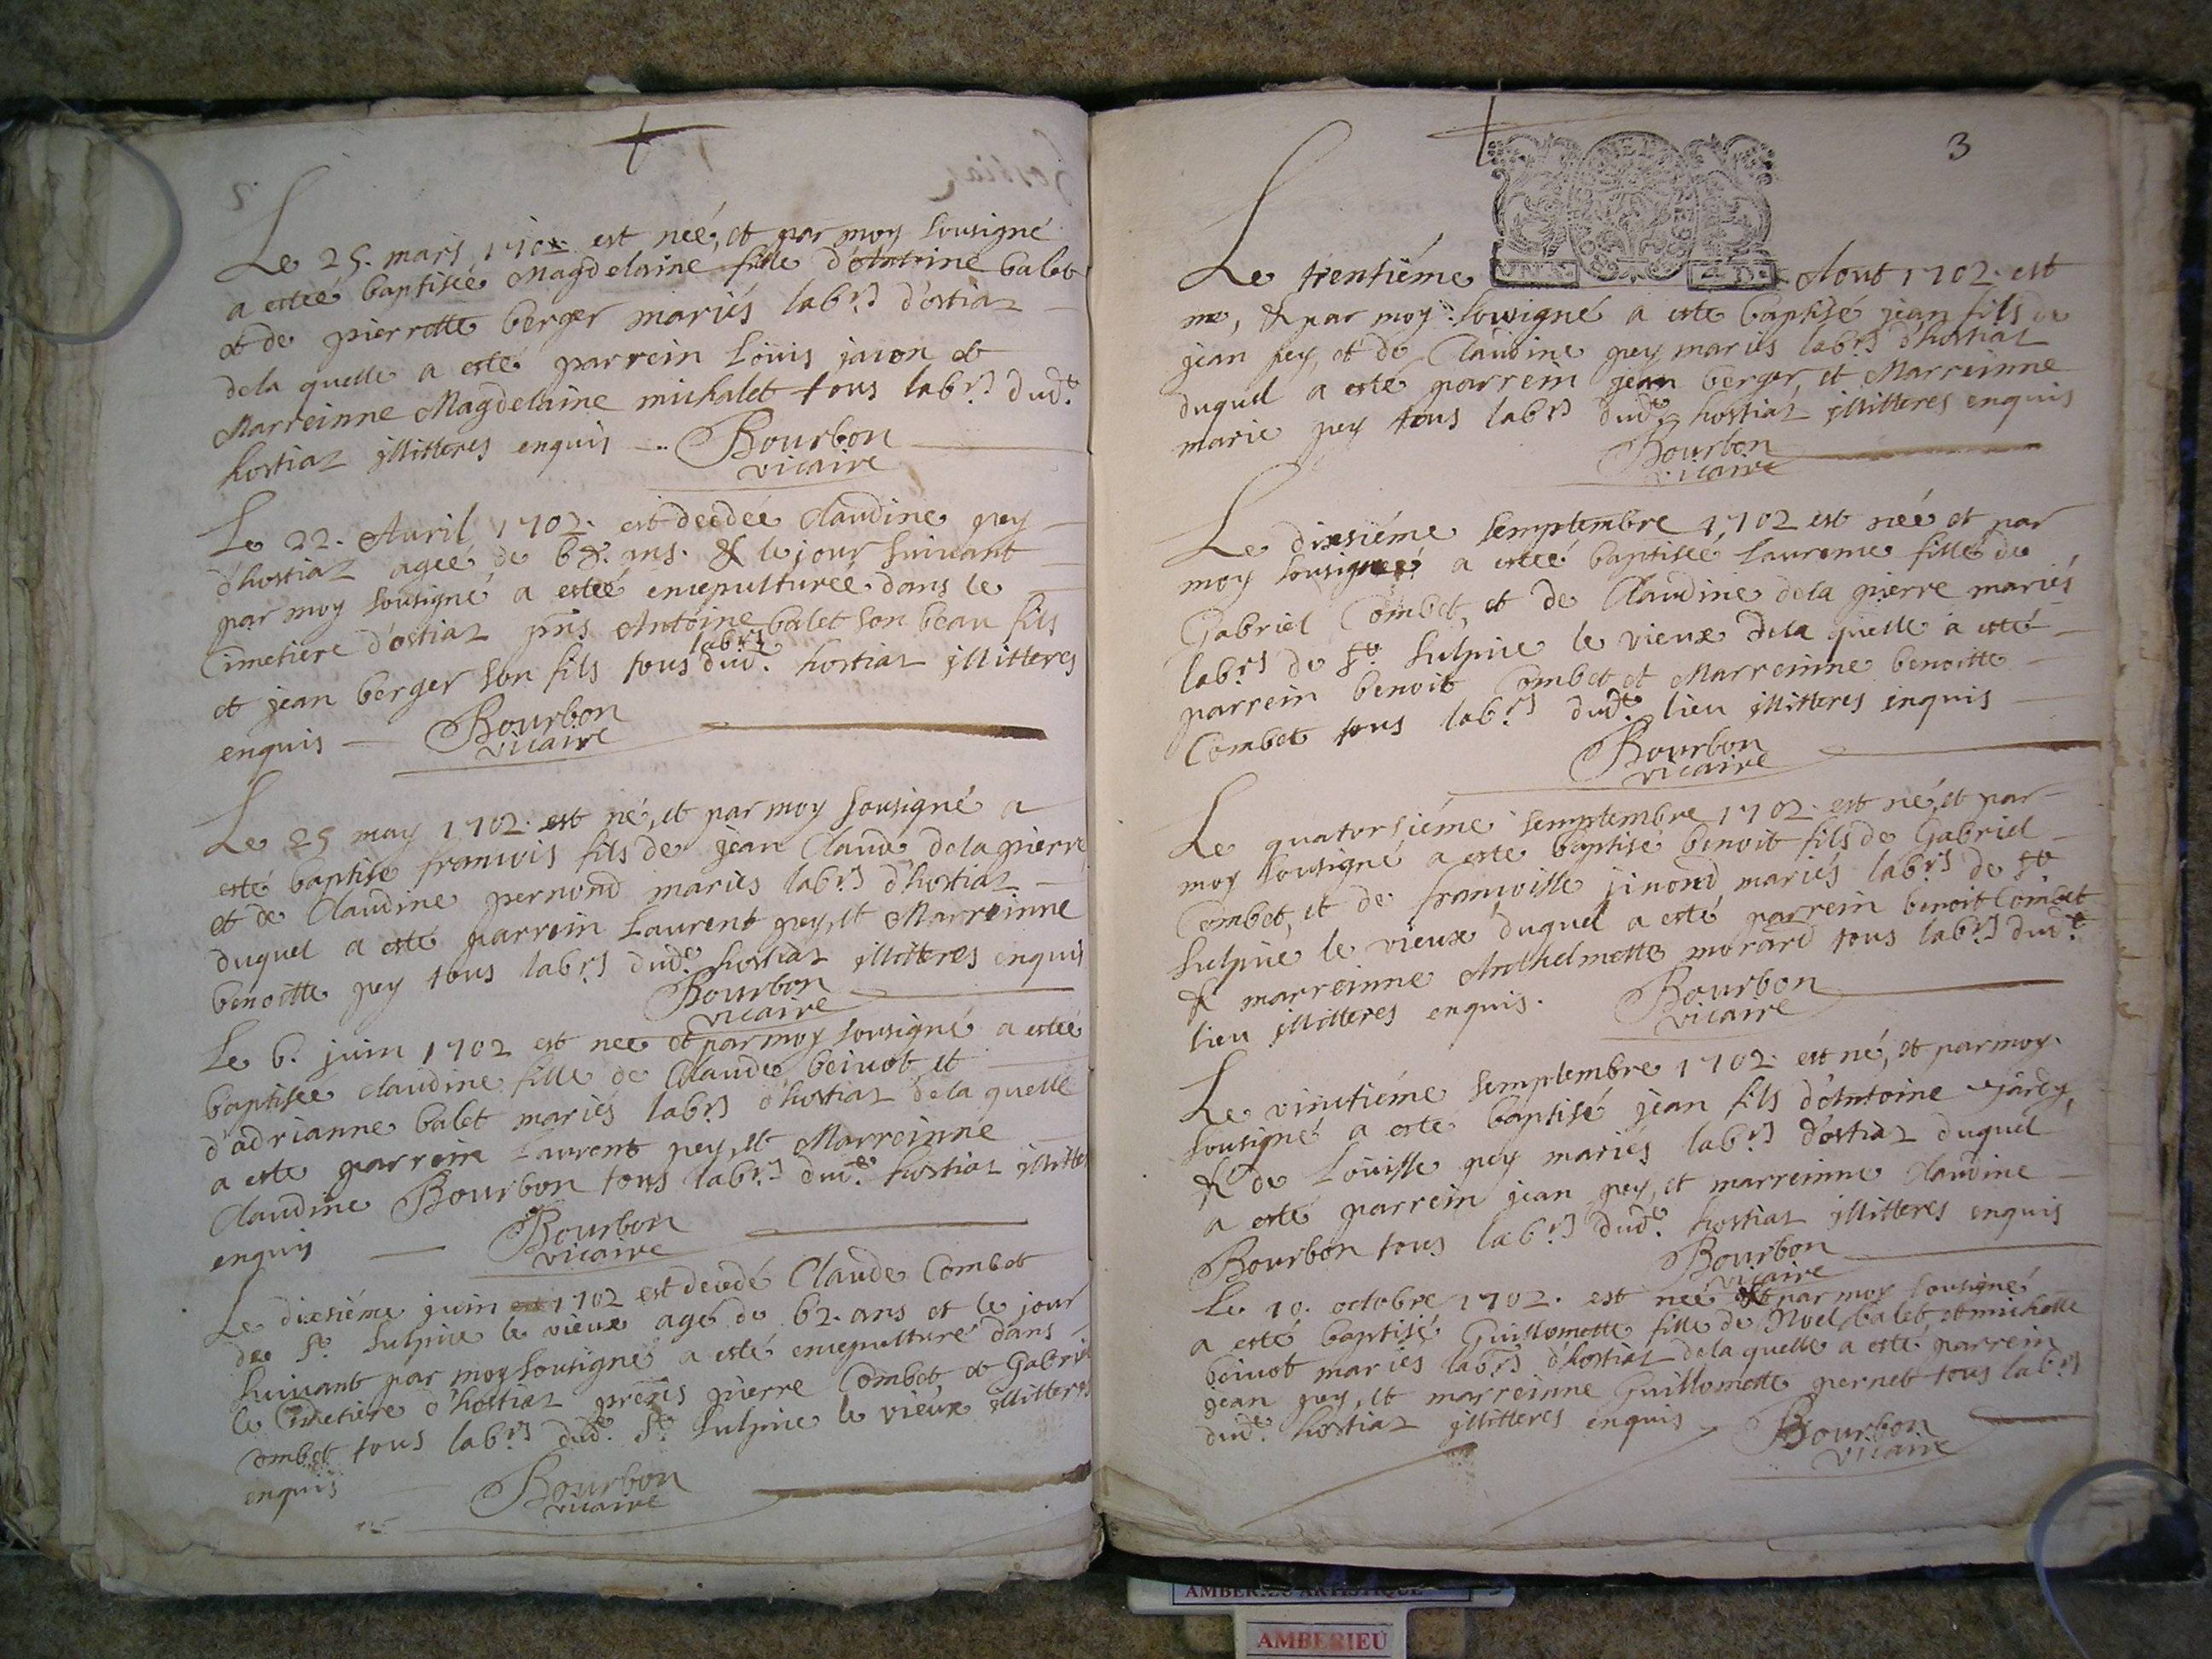 Le 25. mars 1702 est neé, et par moy sousigné
a esteé baptiseé Magdelaine fille d'Antoine balet
et de pierrette berger mariés labrs d'ostiaz
de la quelle a esté parrein Louis jaion et
Marreinne Magdelaine michalet tous labrs dudt
hostiaz illitteres enquis
Bourbon
vicaire
Le 22. Avril 1702. est decedeé Claudine pey
d'hostiaz ageé de ans. & le jour suivant
par moy sousigné a esteé ensepultureé dans le
Cimetiere d'ostiaz pnts Antoine balet son beau fils
et jean berger son fils tous labrs dudt hostiaz illitteres
enquis
Bourbon
vicaire
Le 25 may 1702. est né, et par moy sousigné a
esté baptisé francois fils de jean Claude dela pierre
et de Claudine pernond mariés labrs d'hostiaz
duquel a esté parrein Laurent pey, et Marreinne
benoitte pey tous labrs dudt hostiaz illitteres enquis
Bourbon
vicaire
Le 6. juin 1702 est neé et par moy sousigné a esteé
baptiseé Claudine fille de Claude beivot, et
d'adrianne balet mariés labrs d'hostiaz de la quelle
a esté parrein Laurent pey, et Marreinne
Claudine Bourbon tous labrs dudt hostiaz illitte
enquis
Bourbon
vicaire
Le dixsiéme juin 1702 est decedé Claude Combet
de St sulpice le vieux agé de 62. ans et le jour
suivant par moy sousigné a esté ensepulturé dans
le Cimetiere d'hostiaz presens pierre Combet et Gabriel
Combet tous labrs dudt St sulpice le vieux illitteres
enquis
Bourbon
vicaire
3
Le trentiéme Aout 1702. est
né, & par moy sousigné a esté baptisé jean fils de
jean pey, et de Claudine pey mariés labrs d'hostiaz
duquel a esté parrein jean berger, et Marreinne
marie pey tous labrs dudt hostiaz illitteres enquis
Bourbon
vicaire
Le dixsiéme semptembre 1702 est neé et par
moy sousigné a esteé baptiseé Laurence fille de
Gabriel Combet, et de Claudine dela pierre mariés
labrs de St sulpice le vieux dela quelle a esté
parrein benoit Combet et Marreinne benoitte
Combet tous labrs dudt lieu illitteres enquis
Bourbon
vicaire
Le quatorsiéme semptembre 1702. est né, et par
moy sousigné a esté baptisé benoit fils de Gabriel
Combet, et de francoisse jinond mariés labrs de St
sulpice le vieux duquel a esté parrein benoit Combet
& marreinne Anthelmette morard tous labrs dudt
lieu illitteres enquis.
Bourbon
vicaire
Le vinctiéme semptembre 1702. est né, et par moy
sousigné a esté baptisé jean fils d'Antoine jardy,
& de Louisse pey mariés labrs d'ostiaz duquel
a esté parrein jean pey, et marreinne Claudine
Bourbon tous labrs dudt hostiaz illitteres enquis
Bourbon
vicaire
Le 10. octobre 1702. est neé et par moy sousigné
a esté baptisé Guillomette fille de Noel balet, et michelle
beivot mariés labrs d'hostiaz dela quelle a esté parrein
jean pey, et marreinne Guillomette pernet tous labrs
dudt hostiaz illitteres enquis
Bourbon
vicaire
AMBERIEU ARTISTIQUE
AMBERIEU